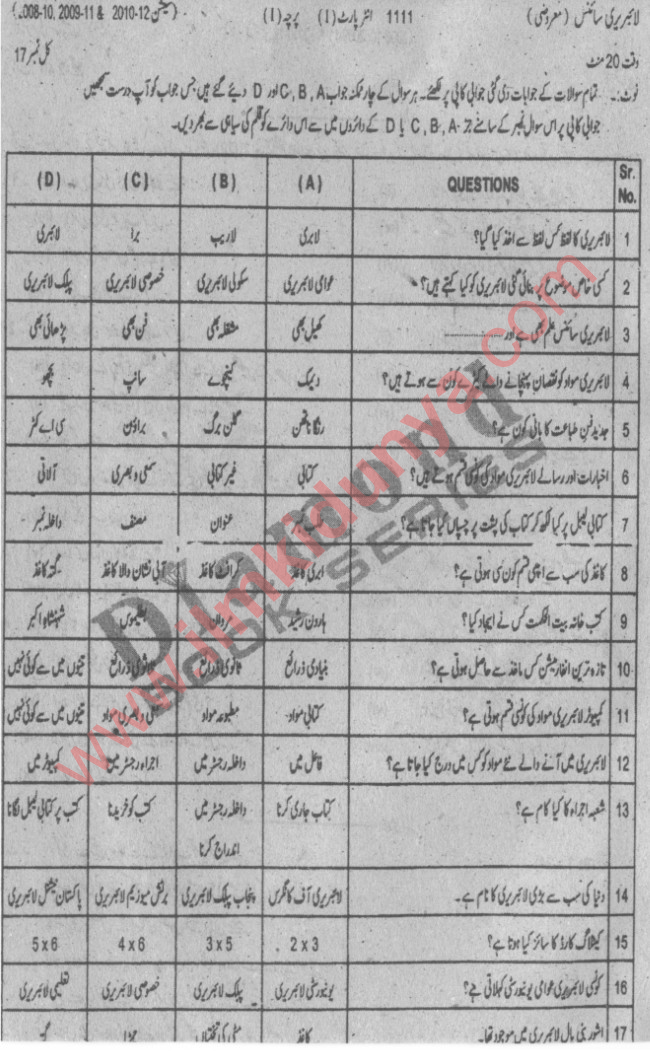 لائبریری سائنس (معروضی) 1111 انٹر پارٹ (I) پرچہ (I) (سیشن 2010-12 & 2009-11 ,008-10)
وقت 20 منٹ کل نمبر 17
نوٹ:۔ تمام سوالات کے جوابات دی گئی جوابی کاپی پر لکھئے۔ ہر سوال کے چار ممکنہ جواب C, B, A اور D دیئے گئے ہیں جس جواب کو آپ درست سمجھیں
جوابی کاپی پر اس سوال نمبر کے سامنے جز C, B, A یا D کے دائروں میں سے اس دائرے کو قلم کی سیاہی سے بھر دیں۔
Sr. No. QUESTIONS (A) (B) (C) (D)
1 لائبریری کا لفظ کس لفظ سے اخذ کیا گیا؟ لابری لاریب برا لائبری
2 کسی خاص موضوع پر بنائی گئی لائبریری کو کیا کہتے ہیں؟ عوامی لائبریری سکولی لائبریری خصوصی لائبریری پبلک لائبریری
3 لائبریری سائنس علم بھی ہے اور ۔۔۔۔۔۔ کھیل بھی مشغلہ بھی فن بھی پڑھائی بھی
4 لائبریری مواد کو نقصان پہنچانے والے کیڑے کون سے ہوتے ہیں؟ دیمک کینچوے سانپ بچھو
5 جدید فن طباعت کا بانی کون ہے؟ رنگا ناتھن گٹن برگ براؤن سی اے کٹر
6 اخبارات اور رسالے لائبریری مواد کی کونسی قسم ہوتے ہیں؟ کتابی غیر کتابی سمعی و بصری آلاتی
7 کتابی لیبل پر کیا لکھ کر کتاب کی پشت پر چسپاں کیا جاتا ہے؟ عنوان مصنف داخلہ نمبر
8 کاغذ کی سب سے اچھی قسم کون سی ہوتی ہے؟ ابری کاغذ کرافٹ کاغذ آبی نشان والا کاغذ گتہ کاغذ
9 کتب خانہ بیت الحکمت کس نے ایجاد کیا؟ ہارون رشید مروان بطلیموس شہنشاہ اکبر
10 تازہ ترین انفارمیشن کس ماخذ سے حاصل ہوتی ہے؟ بنیادی ذرائع ثانوی ذرائع ثلاثوی ذرائع تینوں میں سے کوئی نہیں
11 کمپیوٹر لائبریری مواد کی کونسی قسم ہوتی ہے؟ کتابی مواد مطبوعہ مواد سمعی و بصری مواد تینوں میں سے کوئی نہیں
12 لائبریری میں آنے والے نئے مواد کو کس میں درج کیا جاتا ہے؟ فائل میں داخلہ رجسٹر میں اجراء رجسٹر میں کمپیوٹر میں
13 شعبہ اجراء کا کیا کام ہے؟ کتاب جاری کرنا داخلہ رجسٹر میں کتب کو خریدنا کتب پر کتابی لیبل لگانا
اندراج کرنا
14 دنیا کی سب سے بڑی لائبریری کا نام ہے۔ لائبریری آف کانگرس پنجاب پبلک لائبریری برٹش میوزیم لائبریری پاکستان نیشنل لائبریری
15 کیٹلاگ کارڈ کا سائز کیا ہوتا ہے؟ 2 x 3 3 x 5 4 x 6 5 x 6
16 کونسی لائبریری عوامی یونیورسٹی کہلاتی ہے؟ یونیورسٹی لائبریری پبلک لائبریری خصوصی لائبریری تعلیمی لائبریری
17 اشور بنی پال لائبریری میں موجود تھا۔ کاغذ مٹی کی تختیاں
Diamond
BOOK SERIES
www.ilmkidunya.com